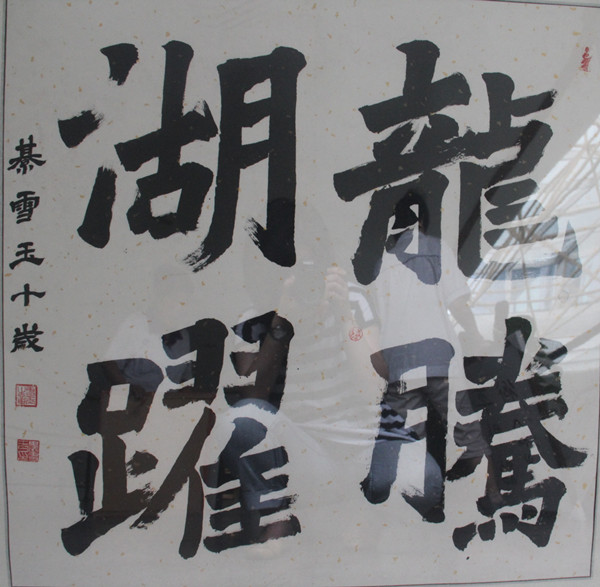 龍騰
湖躍
綦雪玉十歲